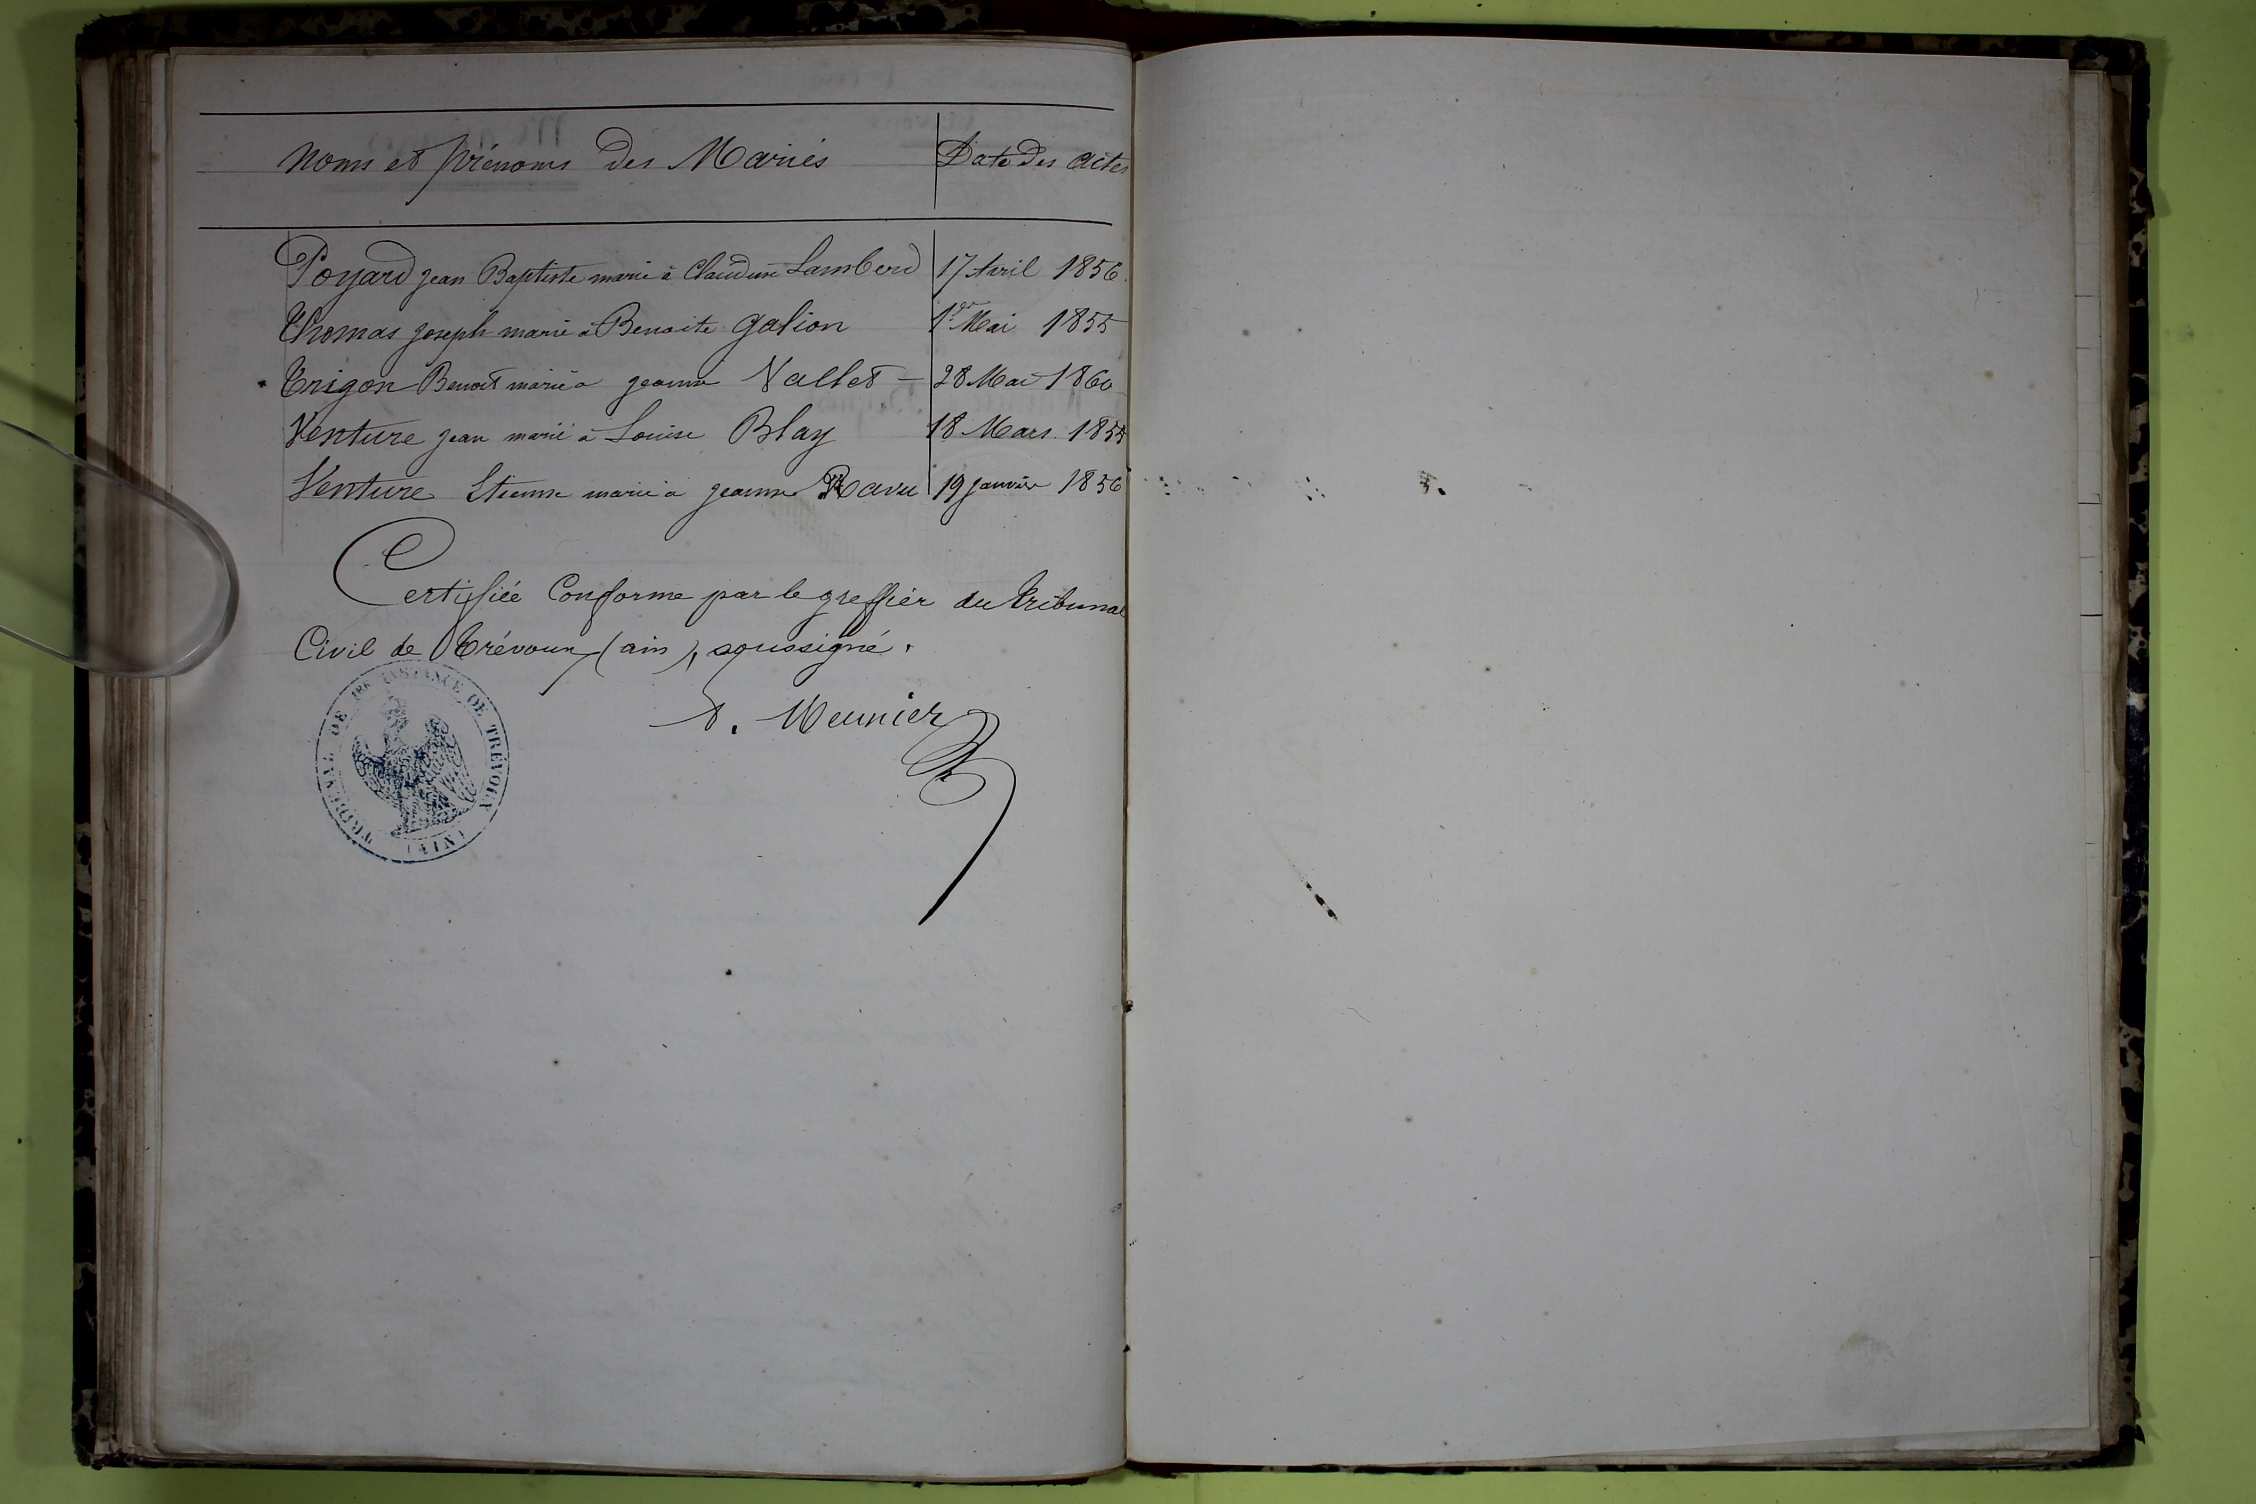 Noms et prénoms Des Mariés Date Des actes
Poyard jean Baptiste marié à Claudine Lamberd 17 Avril 1856.
Thomas joseph marié à Benoite galion 1er Mai 1855
Trigon Benoit marié a jeanne Vallet — 28 Mai 1860
Venture jean marié à Louise Blay 18 Mars 1855
Venture Etienne marié a jeanne Ravu 19 janvier 1856
Certifiée Conforme par le greffier du tribunal
Civil de Trévoux (ain), soussigné.
Meunier
TRIBUNAL DE 1RE INSTANCE DE TREVOUX
(AIN)